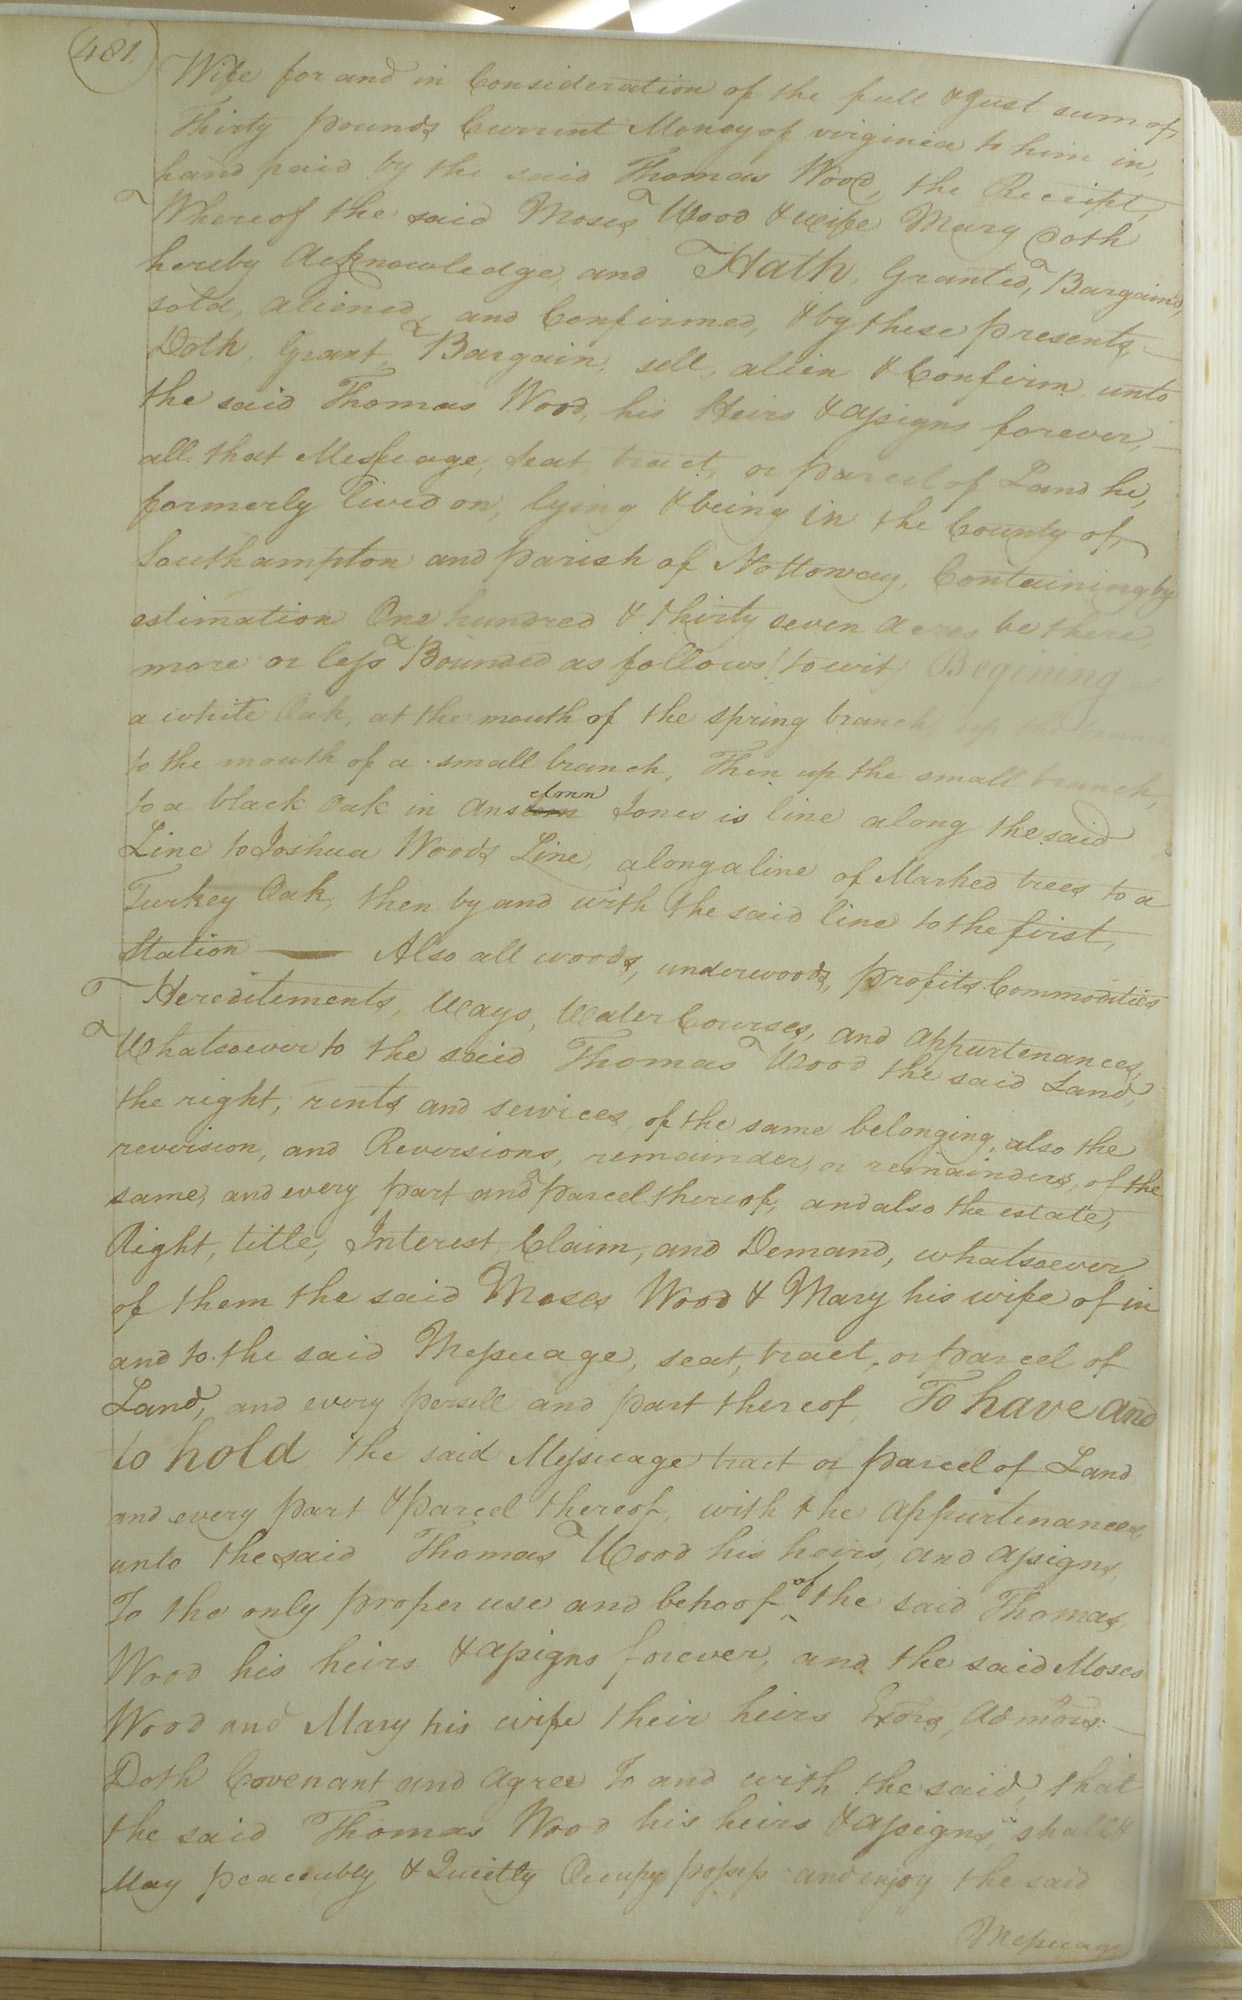 481
Wife for and in Consideration of the full & Just sum of,
Thirty pounds Current Money of virginia to him in,
hand paid by the said Thomas Wood, the Receipt,
Whereof the said Moses Wood & wife Mary doth
hereby Acknowledge, and Hath, Granted, Bargain'd,
sold, aliened, and Confirmed, & by these presents,
Doth, Grant, Bargain, sell, alien & Confirm unto
the said Thomas Wood, his Heirs & assigns forever,
all that Messuage, seat, tract, or parcel of Land he,
formerly lived on, lying & being in the County of,
Southampton and parish of Nottoway, Containing by
estimation One hundred & thirty seven Acres be them,
more or less Bounded as follows (to wit) Begining
a white Oak, at the mouth of the spring branch, up the
to the mouth of a small branch, Then up the small branch,
to a black Oak in Ans elmn Jones is line along the said
Line to Joshua Woods Line, along a line of Marked trees to a
Turkey Oak, then by and with the said line to the first,
Station — Also all woods, underwoods, profits Commodities
Hereditements, Ways, Water Courses, and appurtenances,
Whatsoever to the said Thomas Wood the said Land,
the right, rents and services, of the same belonging, also the
reversion, and Reversions, remainder, or remainders, of the
same, and every part and parcel thereof, and also the estate,
Right, title, Interest, Claim, and Demand, whatsoever
of them the said Moses Wood & Mary his wife of in
and to the said Messuage, seat, tract, or parcel of
Land, and every persell and part thereof, To have and
to hold the said Messuage tract or parcel of Land
and every part & parcel thereof, with the appurtenances,
unto the said Thomas Wood his heirs, and assigns,
To the only proper use and behoof of the said Thomas
Wood his heirs & assigns forever, and the said Moses
Wood and Mary his wife their heirs Exors, Admors.
Doth Covenant and agree to and with the said, that
the said Thomas Wood his heirs & assigns, shall &
May peaceably & Quietly Occupy possess and enjoy the said
Messuage